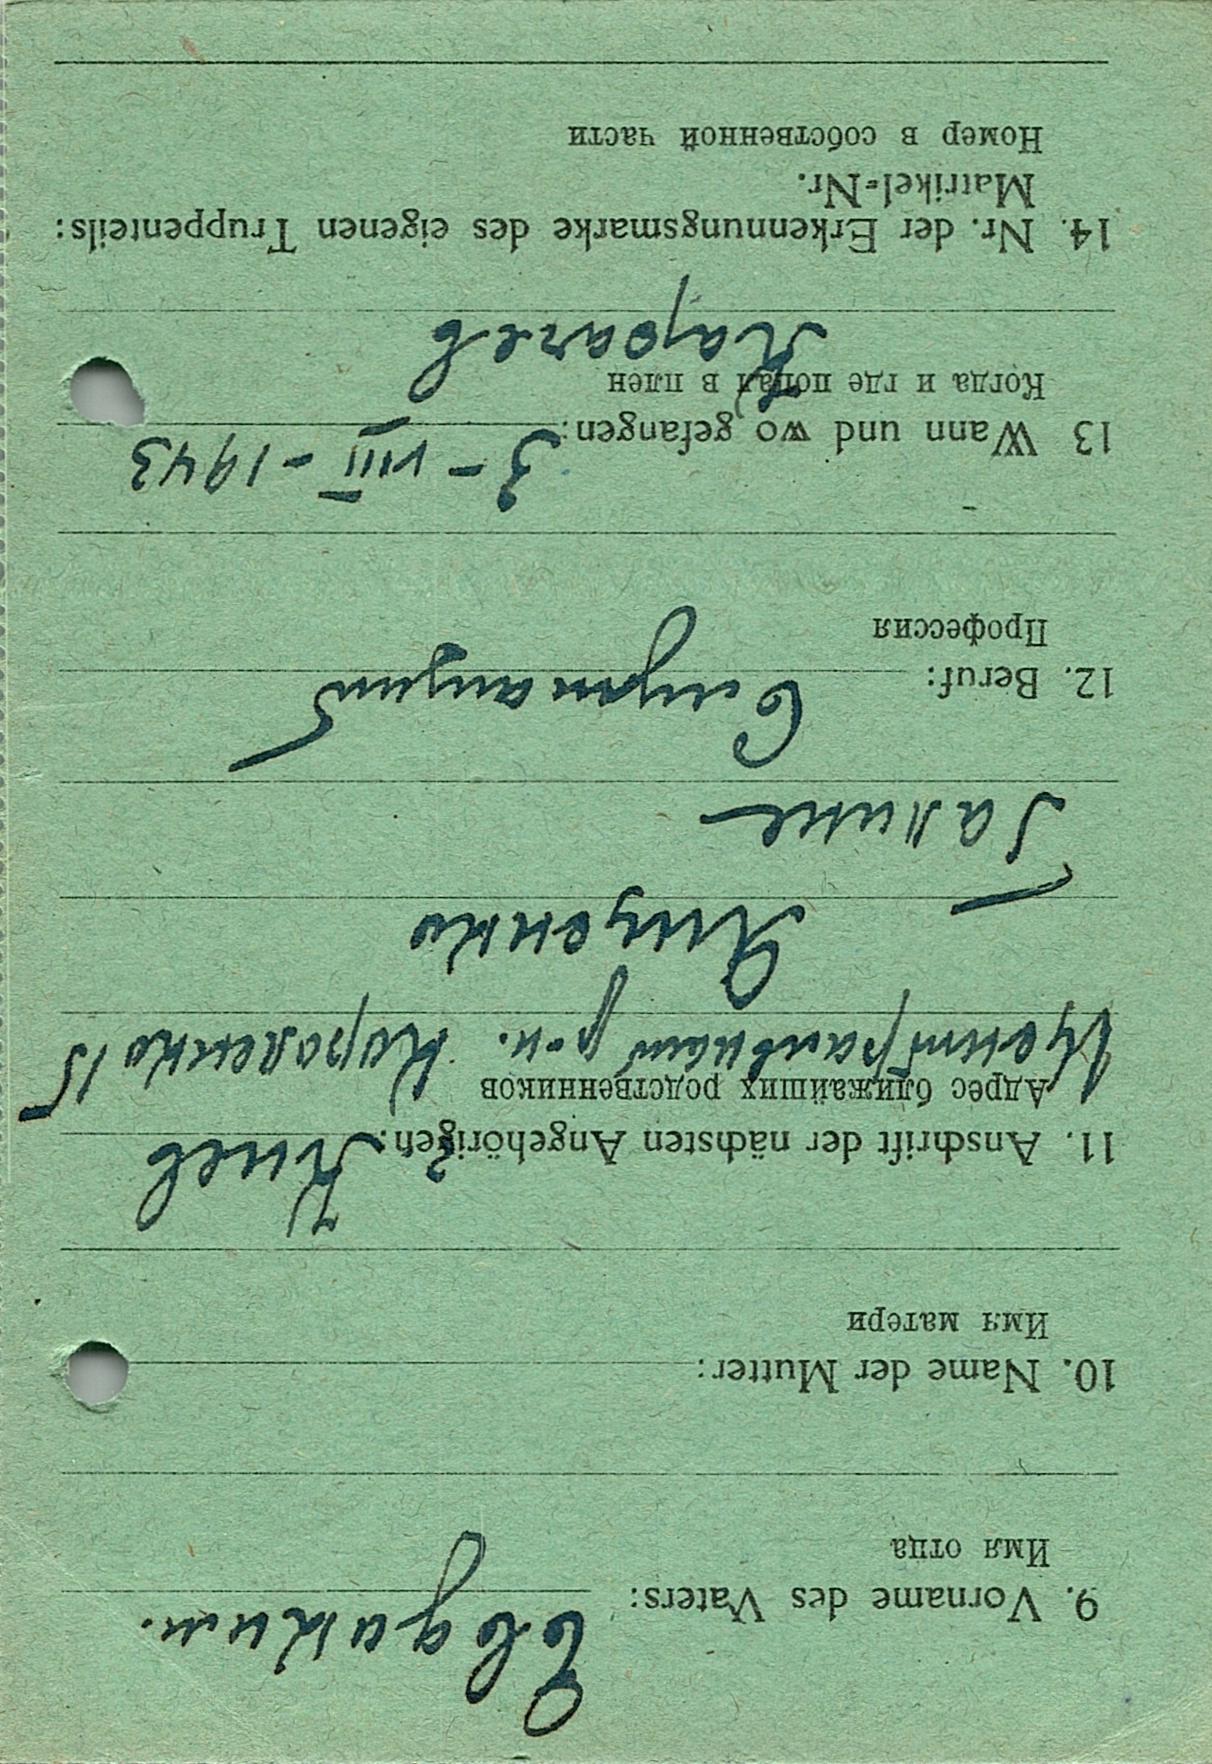 9. Vorname des Vaters: Евдаким.
Имя отца
10. Name der Mutter:
Имя матери
11. Anschrift der nächsten Angehörigen: г. Киев
Адрес ближайших родственников
Центральный р-н. Короленко 15
Ященко
Галине
12. Beruf:
Профессия
13 Wann und wo gefangen: 3-VIII-1943
Когда и где попал в плен
Карачев
14. Nr. der Erkennungsmarke des eigenen Truppenteils:
Matrikel-Nr.
Номер в собственной части